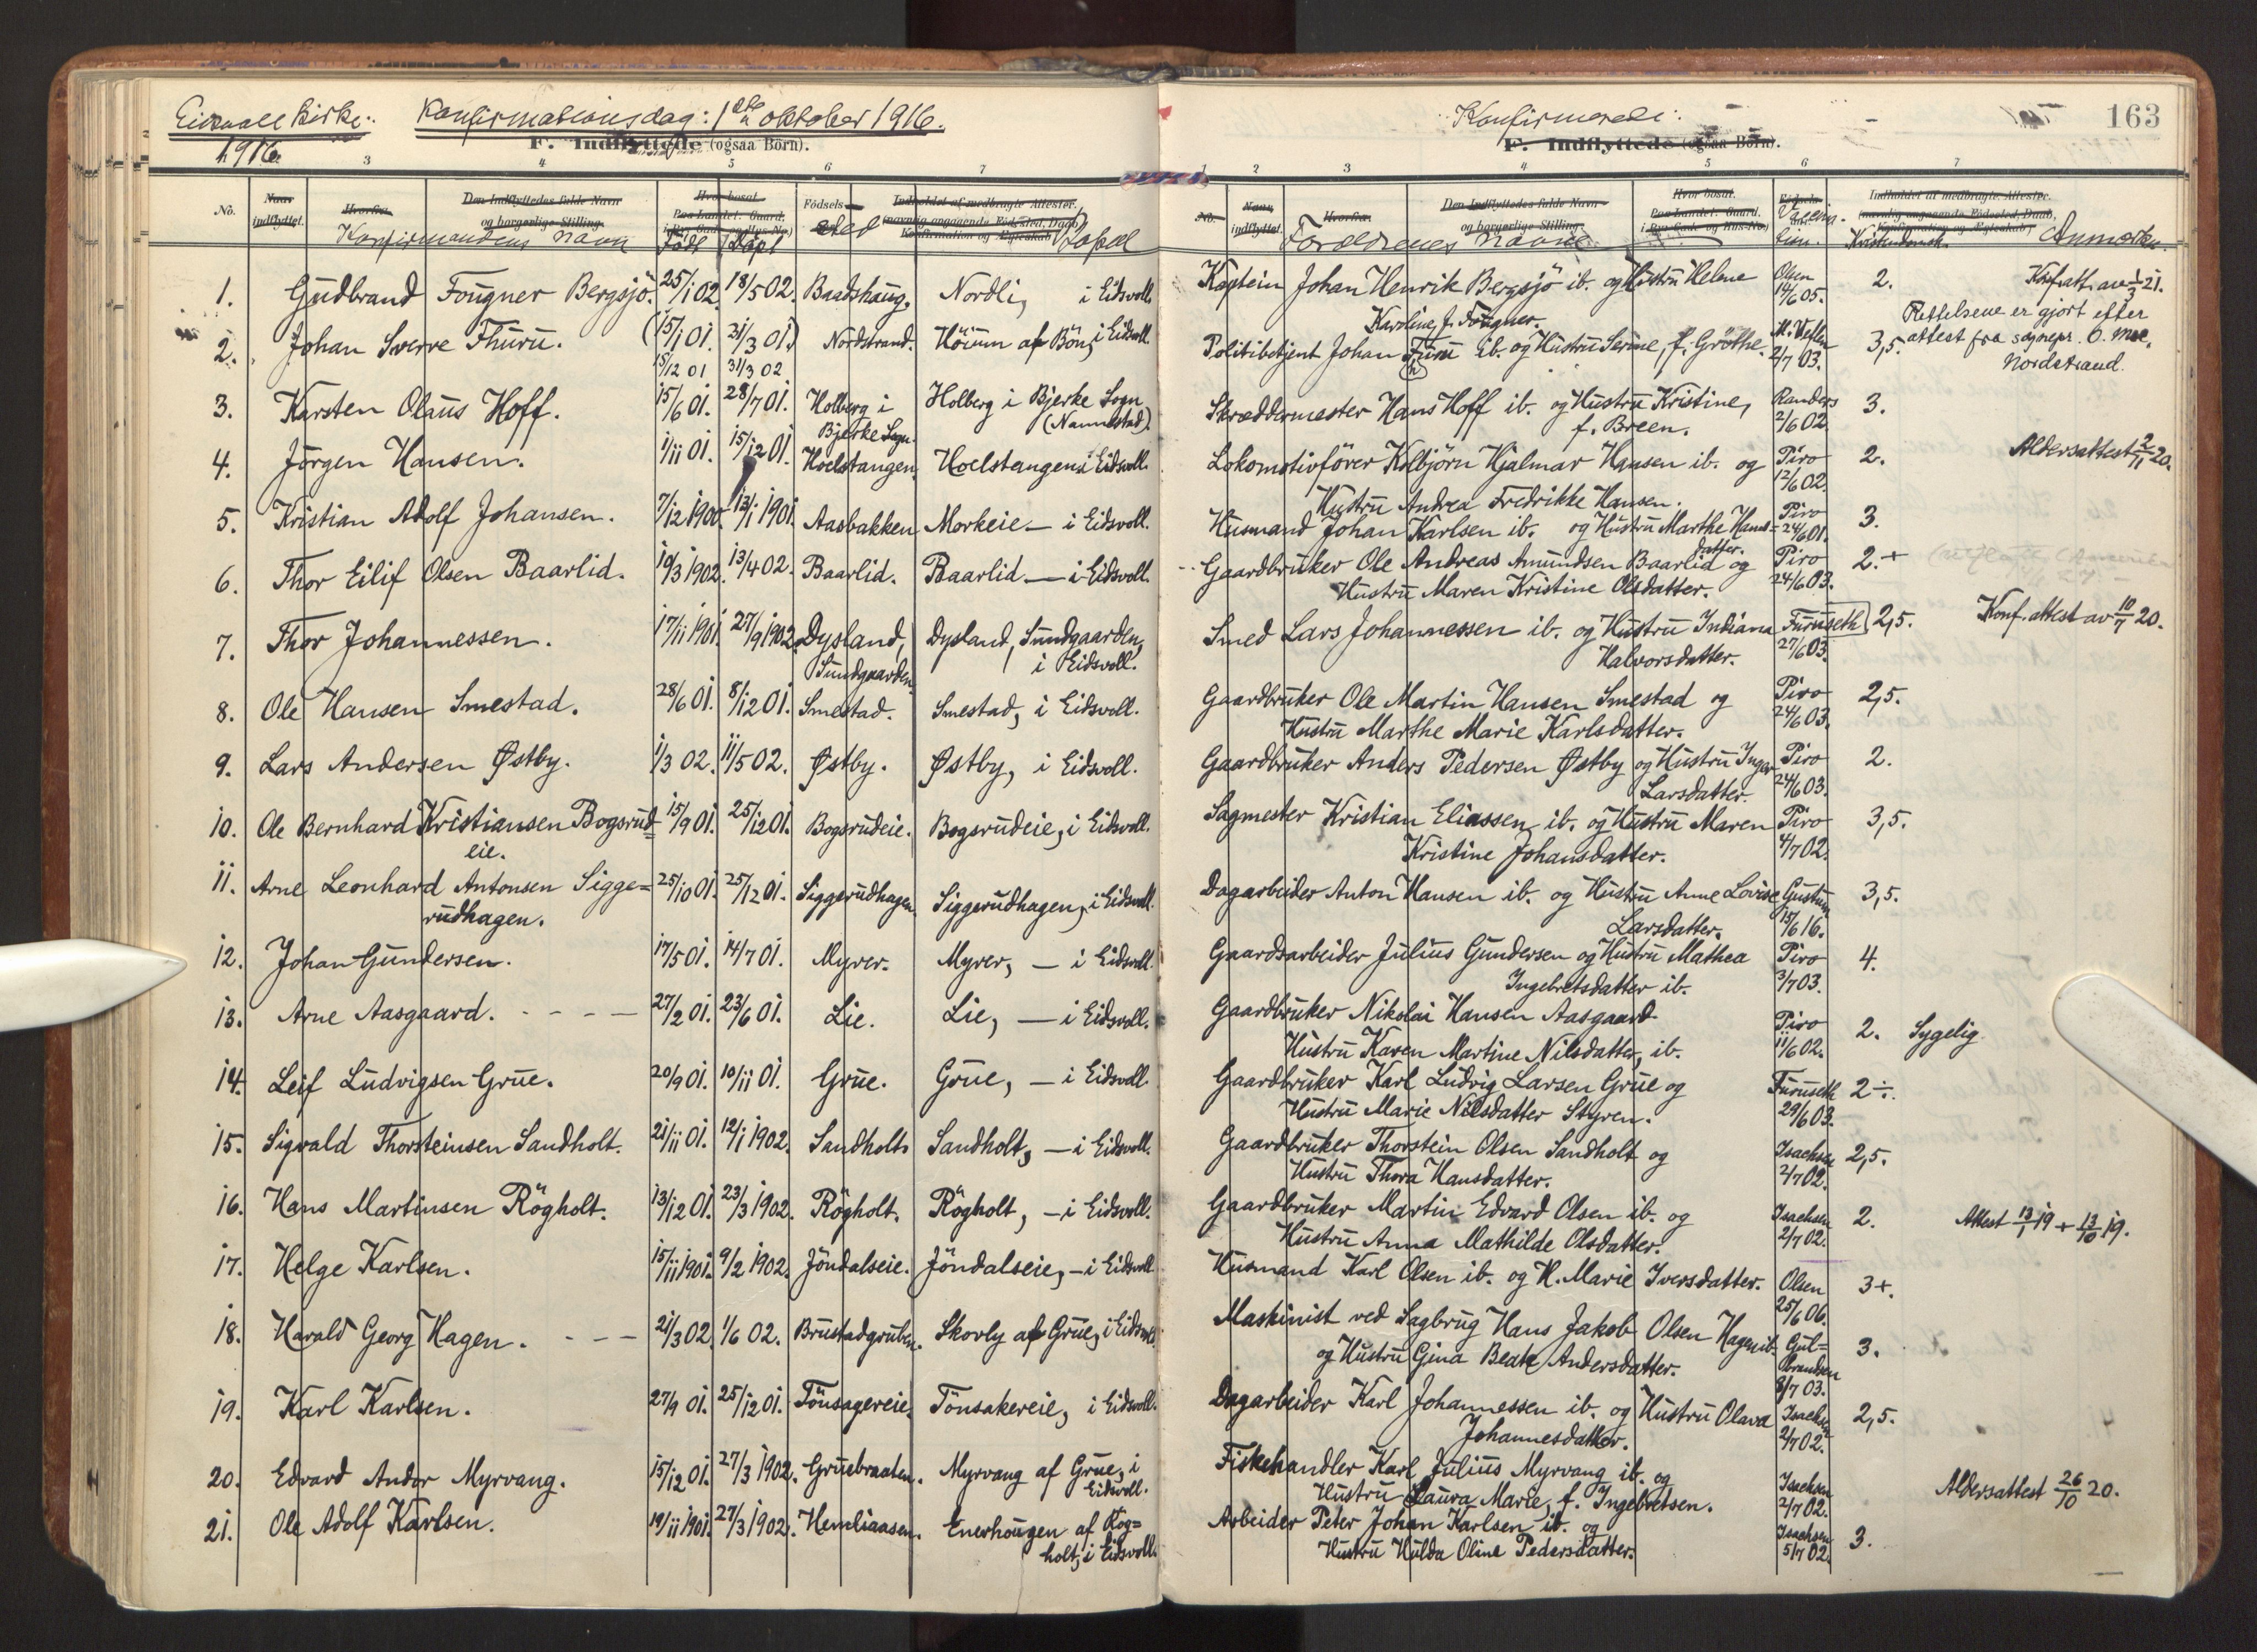 Eidsvoll kirke. Konfirmationsdag: 1ste oktober 1916.
1916.
F. Indflyttede (ogsaa Börn).
3 4 5 6 7
No. Naar indflyttet. Hvorfra. Den Indflyttedes fulde Navn og borgerlige Stilling. Hvor bosat. Paa Landet: Gaard. Födsels- Indholdet af medbragte Attester.
Konfirmandens navn Född Döpt sted Bopæl
1. Gudbrand Fougner Bergsjö. 25/1 02. 18/5 02. Baadshaug. Nordli, i Eidsvoll.
2. Johan Sverre Thuru. (15/1 01. 31/3 01.) Nordstrand. Höium af Bön, i Eidsvoll.
15/12 01 31/3 02
3. Karsten Olaus Hoff. 15/6 01. 28/7 01. Holberg i Holberg i Bjerke Sogn
Bjerke Sogn. (Nannestad).
4. Jörgen Hansen. 1/11 01. 15/12 01. Hoelstangen. Hoelstangen i Eidsvoll.
5. Kristian Adolf Johansen. 7/12 1900. 13/1 1901. Aasbakken Morkeie — i Eidsvoll.
6. Thor Eilif Olsen Baarlid. 19/3 1902. 13/4 02. Baarlid. Baarlid — i Eidsvoll.
7. Thor Johannessen. 17/11 1901. 27/9 1902. Dysland, Dysland, Sundgaarden,
Sundgaarden. i Eidsvoll.
8. Ole Hansen Smestad. 28/6 01. 8/12 01. Smestad. Smestad, i Eidsvoll.
9. Lars Andersen Østby. 1/3 02. 11/5 02. Østby. Østby, i Eidsvoll.
10. Ole Bernhard Kristiansen Bogsrud= 15/9 01. 25/12 01. Bogsrudeie. Bogsrudeie, i Eidsvoll.
eie.
11. Arne Leonhard Antonsen Sigge= 25/10 01. 25/12 01. Siggerudhagen. Siggerudhagen, i Eidsvoll.
rudhagen.
12. Johan Gundersen. 17/5 01. 14/7 01. Myrer. Myrer, — i Eidsvoll.
13. Arne Aasgaard. - - - — 27/2 01. 23/6 01. Lie. Lie, — i Eidsvoll.
14. Leif Ludvigsen Grue. 20/9 01. 10/11 01. Grue. Grue, — i Eidsvoll.
15. Sigvald Thorsteinsen Sandholt. 21/11 01. 12/1 1902. Sandholt. Sandholt, — i Eidsvoll.
16. Hans Martinsen Rögholt. 13/12 01. 23/3 1902. Rögholt. Rögholt, — i Eidsvoll.
17. Helge Karlsen. 15/11 1901. 9/2 1902. Jöndalseie. Jöndalseie, — i Eidsvoll
18. Harald Georg Hagen. - - — 21/3 02. 1/6 02. Brustadgruben. Skovly af Grue, i Eidsvoll.
19. Karl Karlsen. 27/9 01. 25/12 01. Tönsagereie. Tönsakereie, i Eidsvoll.
20. Edvard Andor Myrvang. 15/12 01. 27/3 1902. Gruebraaten. Myrvang af Grue, i
Eidsvoll.
21. Ole Adolf Karlsen. 19/11 1901. 27/3 1902. Hemliaasen. Enerhougen af Rög=
holt, i Eidsvoll.
Konfirmerede: 163
F. Indflyttede (ogsaa Börn).
1 2 3 4 5 6 7
No. Naar indflyttet. Hvorfra. Den Indflyttedes fulde Navn og borgerlige Stilling. Hvor bosat. Paa Landet: Gaard. Indholdet af medbragte Attester.
Forældrenes navne. Kristendomsk. Anmerkn.
Kaptein Johan Henrik Bergsjö ib. og Hustru Helene Olsen 14/6 05. 2. Konf.att. av 1/3 21.
Karoline, f. Fougner. Rettelsene er gjort efter
Politibetjent Johan Furu ib. og Hustru Serine, f. Gröthe. 2/7 03. 3,5. attest fra sognepr. O. Moe,
(h) Nordstrand.
Skræddermester Hans Hoff ib. og Hustru Kristine, Randers 2/6 02. 3.
f. Breen.
Lokomotivförer Kolbjörn Hjalmar Hansen ib. og Piro 12/6 02. 2. Aldersattest 2/11 20.
Hustru Andrea Fredrikke Hansen.
Husmand Johan Karlsen ib. og Hustru Marthe Hans= Piro 24/6 01. 3.
datter.
Gaardbruker Ole Andreas Amundsen Baarlid og Piro 24/6 03. 2.+
Hustru Maren Kristine Olsdatter.
Smed Lars Johannessen ib. og Hustru Indiana Furuseth 27/6 03. 2,5. Konf. attest av 10/7 20.
Halvorsdatter.
Gaardbruker Ole Martin Hansen Smestad og Piro 24/6 03. 2,5.
Hustru Marthe Marie Karlsdatter.
Gaardbruker Anders Pedersen Østby og Hustru Inger Piro 24/6 03. 2.
Larsdatter.
Sagmester Kristian Eliassen ib. og Hustru Maren Piro 4/7 02. 3,5.
Kristine Johansdatter.
Dagarbeider Anton Hansen ib. og Hustru Anne Lovise Gustum 15/6 16. 3,5.
Larsdatter.
Gaardsarbeider Julius Gundersen og Hustru Mathea Piro 3/7 03. 4.
Ingebretsdatter ib.
Gaardbruker Nikolai Hansen Aasgaard Piro 11/6 02. 2. Sygelig.
Hustru Karen Martine Nilsdatter, ib.
Gaardbruker Karl Ludvig Larsen Grue og Furuseth 29/6 03. 2÷.
Hustru Marie Nilsdatter Styren.
Gaardbruker Thorstein Olsen Sandholt og Isachsen 2/7 02. 2,5.
Hustru Thora Hansdatter.
Gaardbruker Martin Edvard Olsen ib. og Isachsen 2/7 02. 2. Attest 13/1 19 + 13/10 19.
Hustru Anna Mathilde Olsdatter.
Husmand Karl Olsen ib. og H. Marie Iversdatter. Olsen 25/6 06. 3+.
Maskinist ved Sagbrug Hans Jakob Olsen Hagen ib. Gul=
og Hustru Gina Beate Andersdatter. brandsen 8/7 03. 3.
Dagarbeider Karl Johannessen ib. og Hustru Olava Isachsen 2/7 02. 2,5.
Johannesdatter.
Fiskehandler Karl Julius Myrvang ib. og Isachsen 2/7 02. Aldersattest 26/10 20.
Hustru Laura Marie, f. Ingebretsen.
Arbeider Peter Johan Karlsen ib. og Isachsen 5/7 02. 3.
Hustru Hulda Oline Pedersdatter.